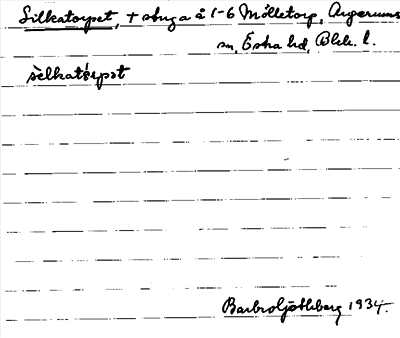 Silkatorpet, + stuga å 1-6 Mölletorp, Augerums
sn, Östra hd, Blek. l.
sèlkatórpət
Barbro Ljothberg 1934.